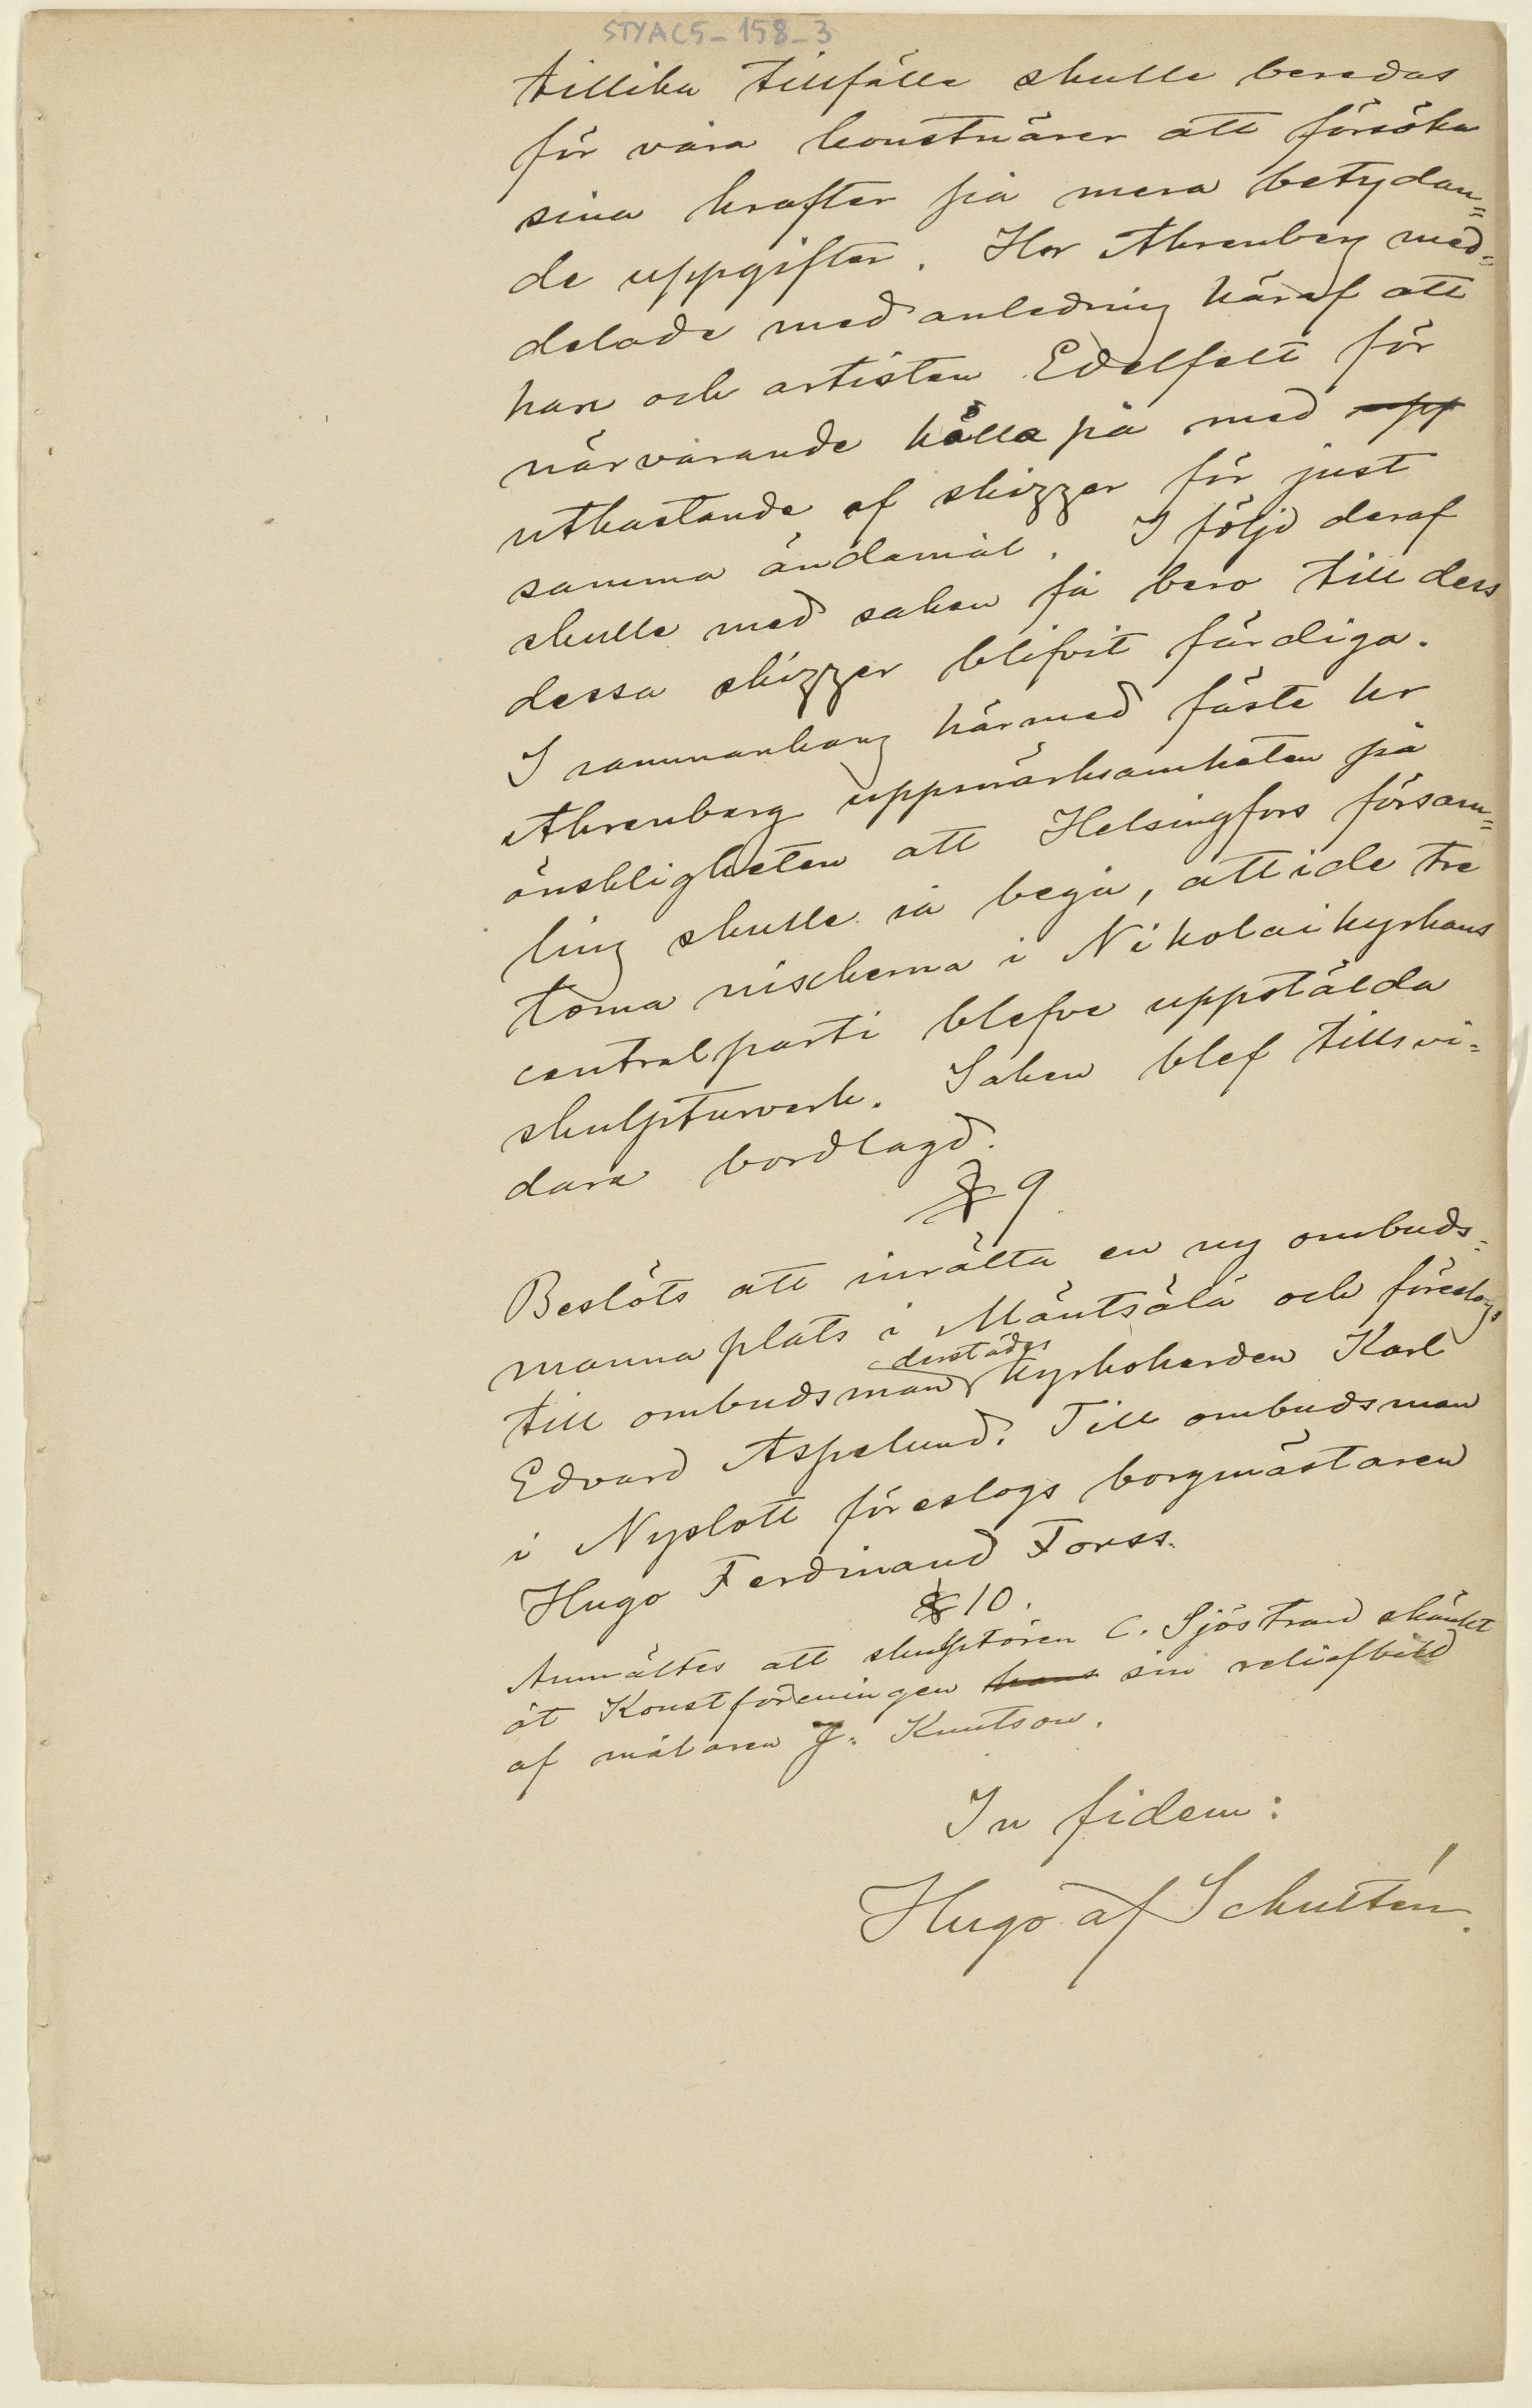 STYAC5-158-3
tillika tillfälle skulle beredas
för våra konstnärer att försöka
sina krafter på mera betydan=
de uppgifter. Hr Ahrenberg med=
delade med anledning häraf att
han och artisten Edelfelt för
närvarande hålla på med upp
utkastande af skizzer för just
samma ändamål. I följd deraf
skulle med saken få bero till dess
dessa skizzer blifvit färdiga.
I sammanhang härmed fäste hr
Ahrenberg uppmärksamheten på
önskligheten att Helsingfors försam=
ling skulle så begå, att i de tre
toma nischerna i Nikolaikyrkans
centralparti blefve uppstälda
skulpturverk. Saken blef tillsvi=
dare bordlagd.
§ 9
Beslöts att inrätta en ny ombuds=
manna plats i Mäntsälä och föreslogs
derstädes
till ombudsman kyrkoherden Karl
Edvard Aspelund. Till ombudsman
i Nyslott föreslogs borgmästaren
Hugo Ferdinand Forss.
§ 10.
Anmältes att skulptören C. Sjöstrand skänkt
åt Konstföreningen hans sin reliefbild
af målaren J. Knutson.
In fidem:
Hugo af Schultén.